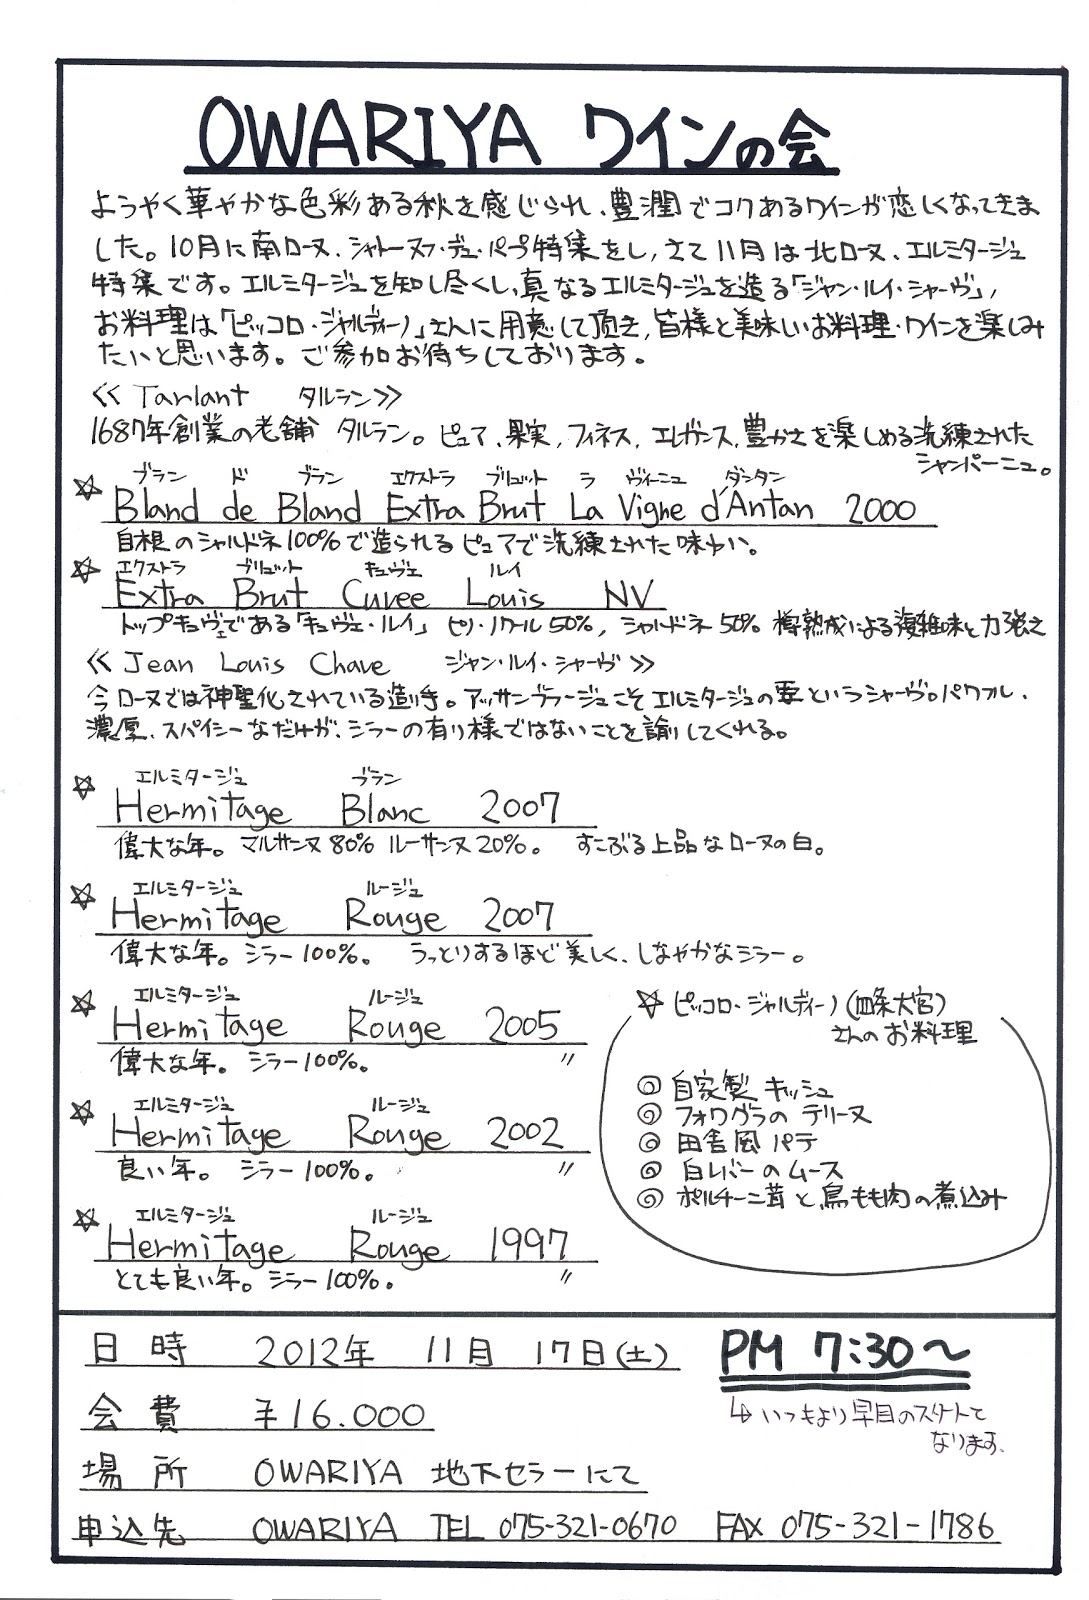 OWARIYA ワインの会
ようやく華やかな色彩ある秋を感じられ、豊潤でコクあるワインが恋しくなってきま
した。10月に南ローヌ、シャトーヌフ・デュ・パプ特集をし、さて11月は北ローヌ、エルミタージュ
特集です。エルミタージュを知し尽くし、真なるエルミタージュを造る「ジャン・ルイ・シャーヴ」、
お料理は「ピッコロ・ジャルディーノ」さんに用意して頂き、皆様と美味しいお料理・ワインを楽しみ
たいと思います。ご参加お待ちしております。
≪ Tarlant タルラン≫
1687年創業の老舗 タルラン。ピュア、果実、フィネス、エレガンス、豊かさを楽しめる洗練された
シャンパーニュ。
ブラン ド ブラン エクストラ ブリュット ラ ヴィーニュ ダンタン
☆ Bland de Bland Extra Brut La Vigne d'Antan 2000
自根のシャルドネ100%で造られるピュアで洗練された味わい。
エクストラ ブリュット キュヴェ ルイ
☆ Extra Brut Cuvee Louis NV
トップキュヴェである「キュヴェ・ルイ」 ピノ・ノワール50%, シャルドネ50% 樽熟成による複雑味と力強さ
≪ Jean Louis Chave ジャン・ルイ・シャーヴ ≫
今ローヌでは神聖化されている造り手。アッサンブラージュこそエルミタージュの要というシャーヴ。パワフル、
濃厚、スパイシーなだけが、シラーの有り様ではないことを諭してくれる。
エルミタージュ ブラン
☆ Hermitage Blanc 2007
偉大な年。マルサンヌ80% ルーサンヌ20%。 すこぶる上品なローヌの白。
エルミタージュ ルージュ
☆ Hermitage Rouge 2007
偉大な年。シラー100%。 うっとりするほど美しく、しなやかなシラー。
エルミタージュ ルージュ
☆ Hermitage Rouge 2005
偉大な年。シラー100%。 〃
エルミタージュ ルージュ
☆ Hermitage Rouge 2002
良い年。 シラー100%。 〃
エルミタージュ ルージュ
☆ Hermitage Rouge 1997
とても良い年。シラー100%. 〃
☆ ピッコロ・ジャルディーノ(四条大宮)
さんのお料理
◎ 自家製 キッシュ
◎ フォワグラの テリーヌ
◎ 田舎風 パテ
◎ 白レバーのムース
◎ ポルチーニ茸と鳥もも肉の煮込み
日時 2012年 11月 17日(土) PM 7:30〜
↳ いつもより早目のスタートと
なります。
会費 ¥16.000
場所 OWARIYA 地下セラーにて
申込先 OWARIYA TEL 075-321-0670 FAX 075-321-1786